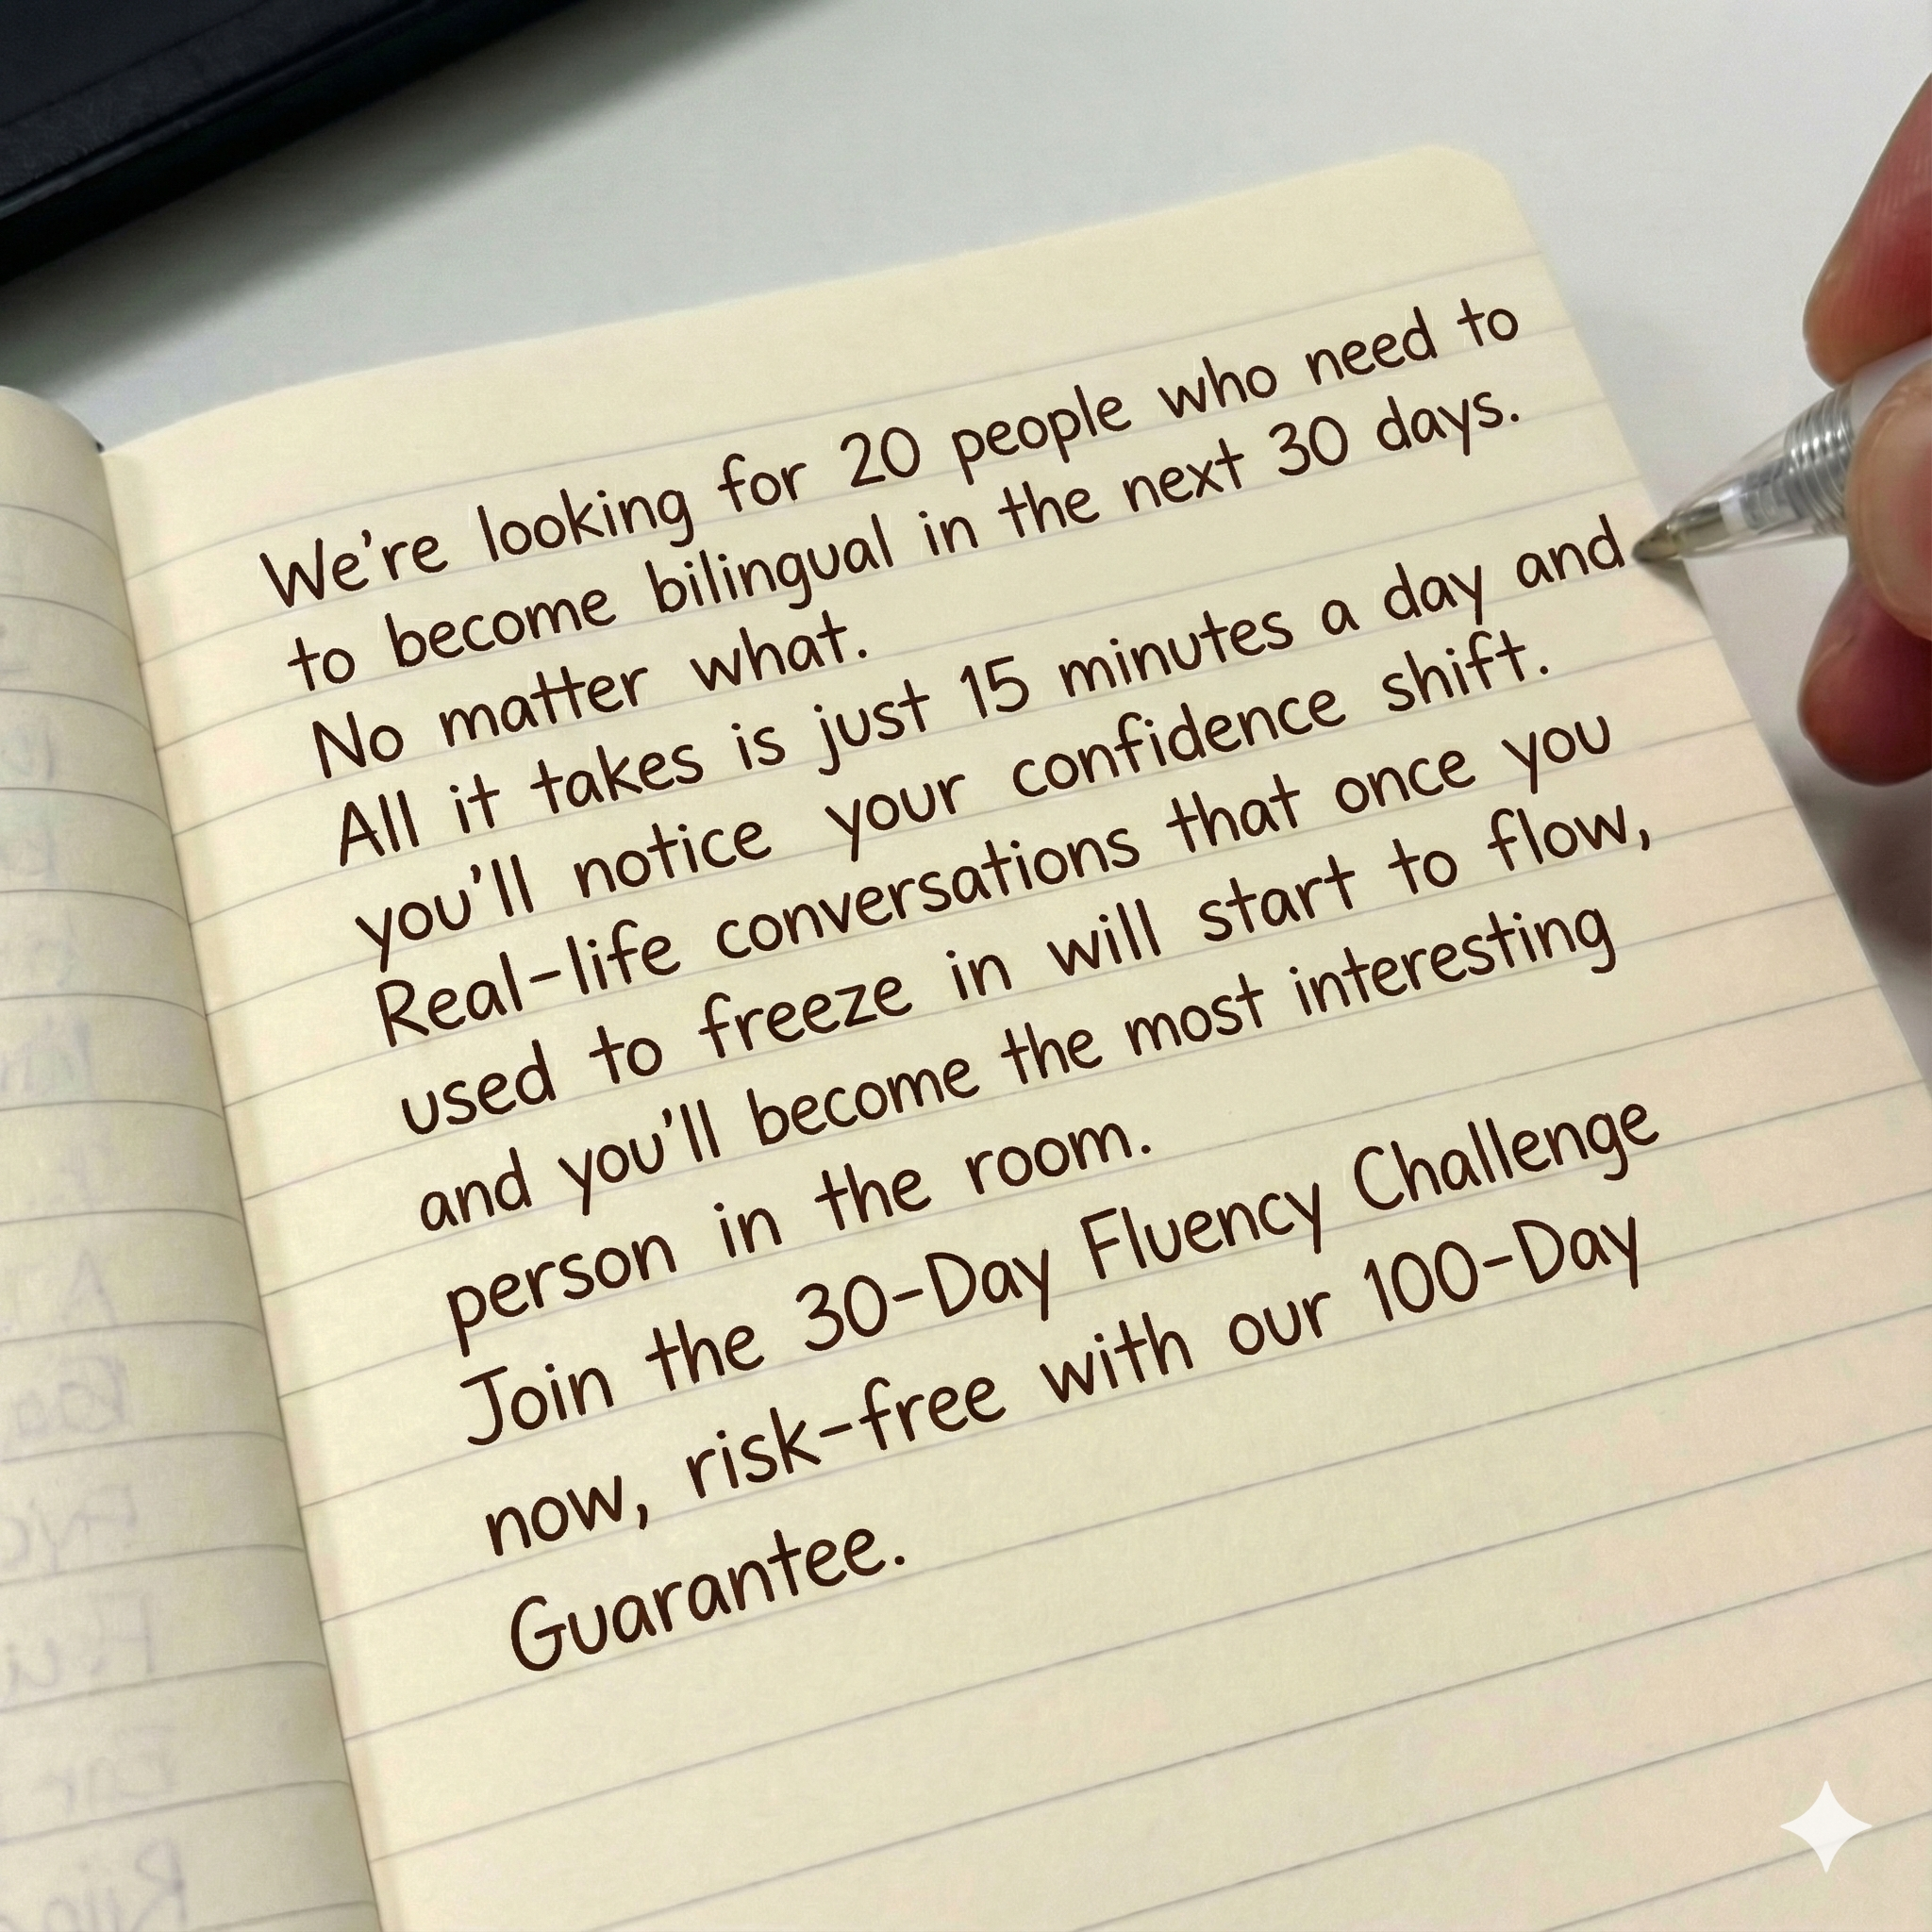 We're looking for 20 people who need to
to become bilingual in the next 30 days.
No matter what.
All it takes is just 15 minutes a day and
you'll notice your confidence shift.
Real-life conversations that once you
used to freeze in will start to flow,
and you'll become the most interesting
person in the room.
Join the 30-Day Fluency Challenge
now, risk-free with our 100-Day
Guarantee.